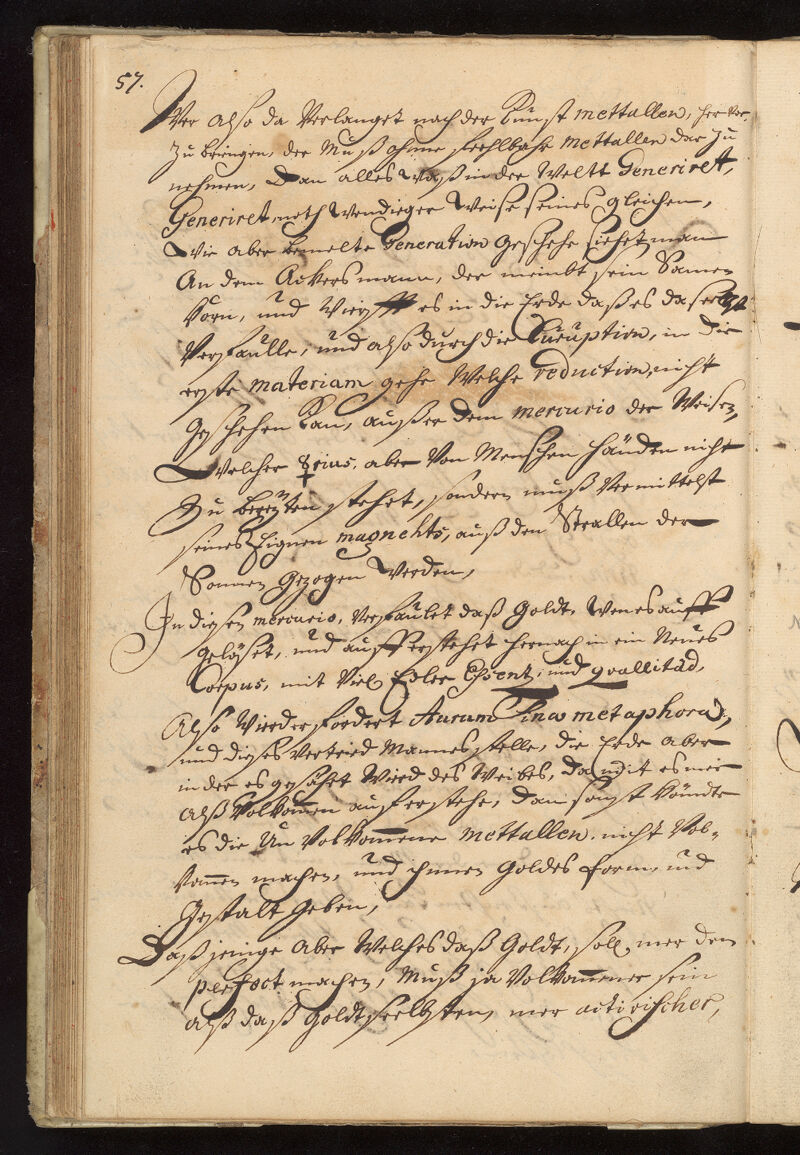 57.
Wer also da Verlanget nach der Kunst mettallen, her vor
zu bringen, der Muß ohnne fehlbahr mettallen dar zu
nehmen, Dan alles waß in der Weltt Generiret,
Generiret noth wendieger Weise seines gleichen,
Wie aber bemelte Generation geschehe siehet man
An dem Ackersmann, der nimbt sein Samen
Korn, und Wirfft es in die Erde daß es daselbst
Verfaulle, und also durch die Curuption, in die
erste materiam gehe Welche reduction, nicht
geschehen Kan, ausser dem mercurio der Weisen,
Welcher ☿rius, aber Von Menschen händen nicht
Zu bereyten stehet, sondern muß Vermittelst
seines Eignen magnehts, auß den Strallen der
Sonnen Gezogen Werden,
In diesen mercurio, Verfaulet daß Goldt, wen es auff
gelöset, und aufferstehet hernach in ein Neues
Corpus, mit Viel Edler Essent, und quallitäd,
Also Wieder fordert Aurum metaphora,
und dieses Vertried Mannes stelle, die Erde aber
in der es gesähet Wird des Weibes, damit es mir
Alß Volkomen aufferstehe, dan sonst könndte
es die Un Volkommene mettallen nicht Vol-
kommen machen, und ihnnen Goldes form, und
Gestalt Geben,
Daß jenige Aber Welches daß Goldt, soll mer den
perfect machen, Muß ja Volkommener sein
alß daß Goldt selbsten, mer activischer,